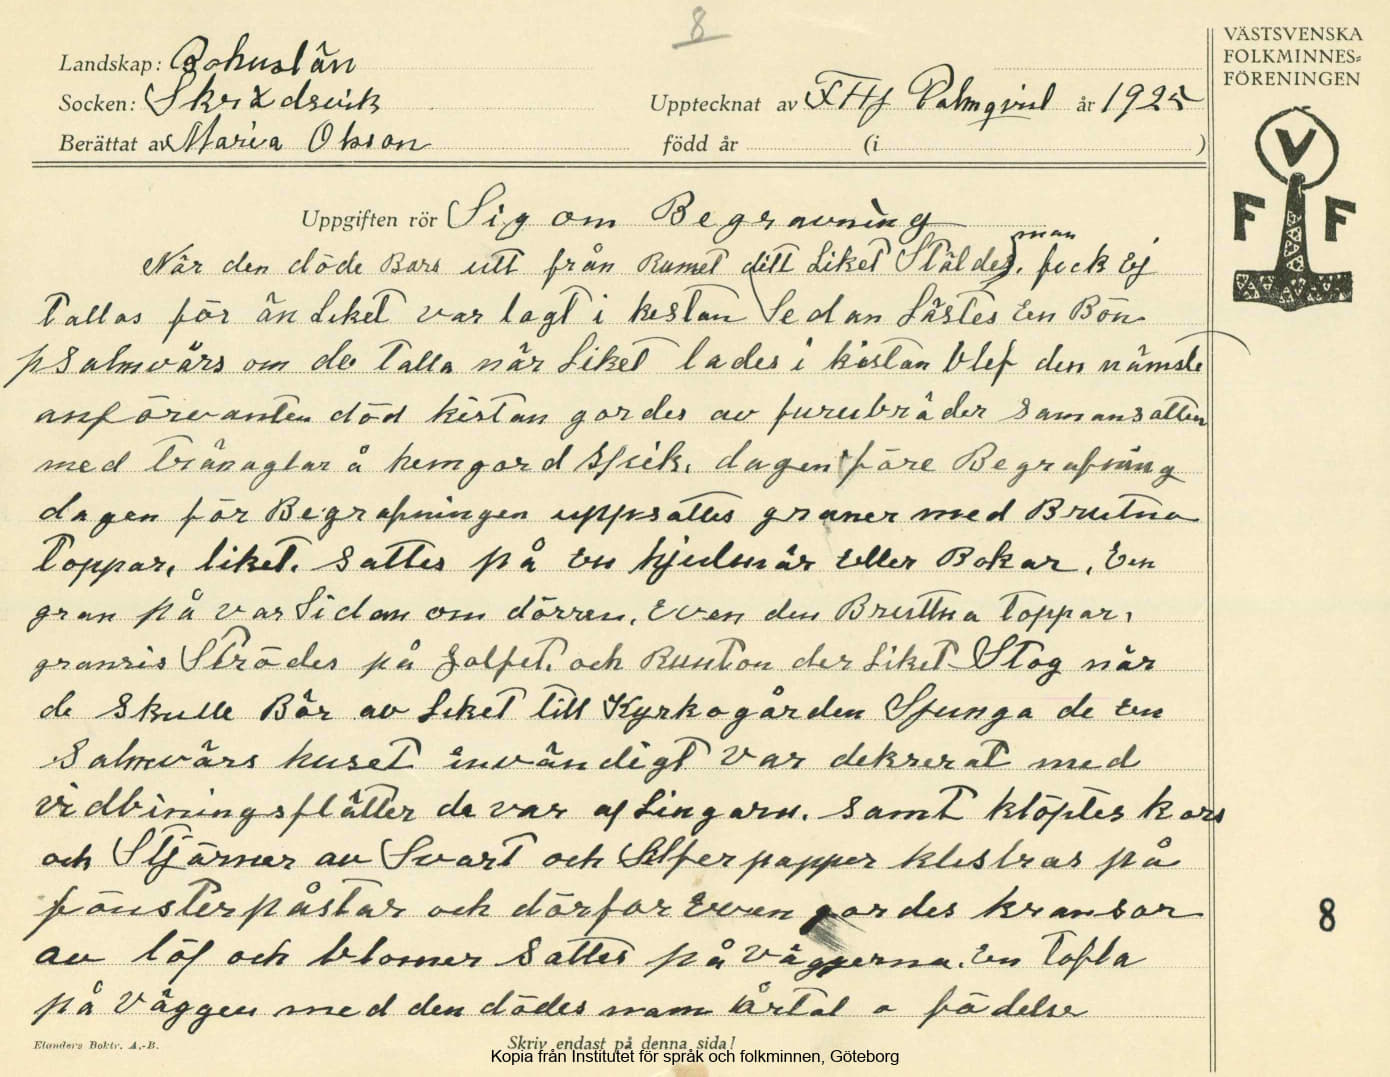 8
VÄSTSVENSKA
FOLKMINNES=
FÖRENINGEN
Landskap: Bohuslän
Socken: Skredsvik
Upptecknat av FHj Palmqvist år 1925
Berättat av Maria Olsson
född år (i )
V
F F
Uppgiften rör Sig om Begravning
När den döde Bars utt från Rumet ditt Liket Stäldes, man fick Ej
Tallas för än Liket var lagt i kistan Sedan Lästes En Bön
psalmvärs om de Talla när Liket lades i kistan blef den nämste
anförvanten död kistan gordes av furubräder samansatten
med Tränaglar å hemgord Spik, dagen före Begrafning
dagen för Begrafningen uppsattes graner med Brutna
Toppar, liket. sattes på En hjulnär Eller Bokar, En
gran på var Sidan om dörren, Even den Bruttna Toppar,
granris Strödes på golfet, och Runton der Liket Stog när
de skulle Bär av Liket till Kyrkogården Sjunga de En
Salmvärs huset invändigt var dekrerat med
vidbiningsflätter de var af Lingarn, samt klöptes kors
och Stjärner au Svart och Silferpapper klistras på
fönsterpåstar och dörfor Even gordes kransor
au löf och blomer Sattes på väggerna, En Tofla
på väggen med den dödes namn årtal o födelse
8
Elanders Boktr. A.-B.
Skriv endast på denna sida!
Kopia från Institutet för språk och folkminnen, Göteborg